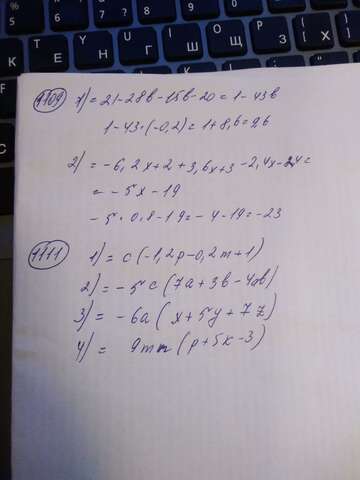 6 7 8 9 0
К Е Н Г Ш Щ З Х
1109 1) = 21-28в-15в-20 = 1-43в
1-43·(-0,2) = 1+8,6 = 9,6
2) = -6,2x+2+3,6x+3-2,4x-24 =
= -5x-19
-5·0,8-19 = -4-19 = -23
1111 1) = c(-1,2p-0,2m+1)
2) = -5c(7a+3в-4ав)
3) = -6a(x+5y+7z)
4) = 9mn(p+5k-3)